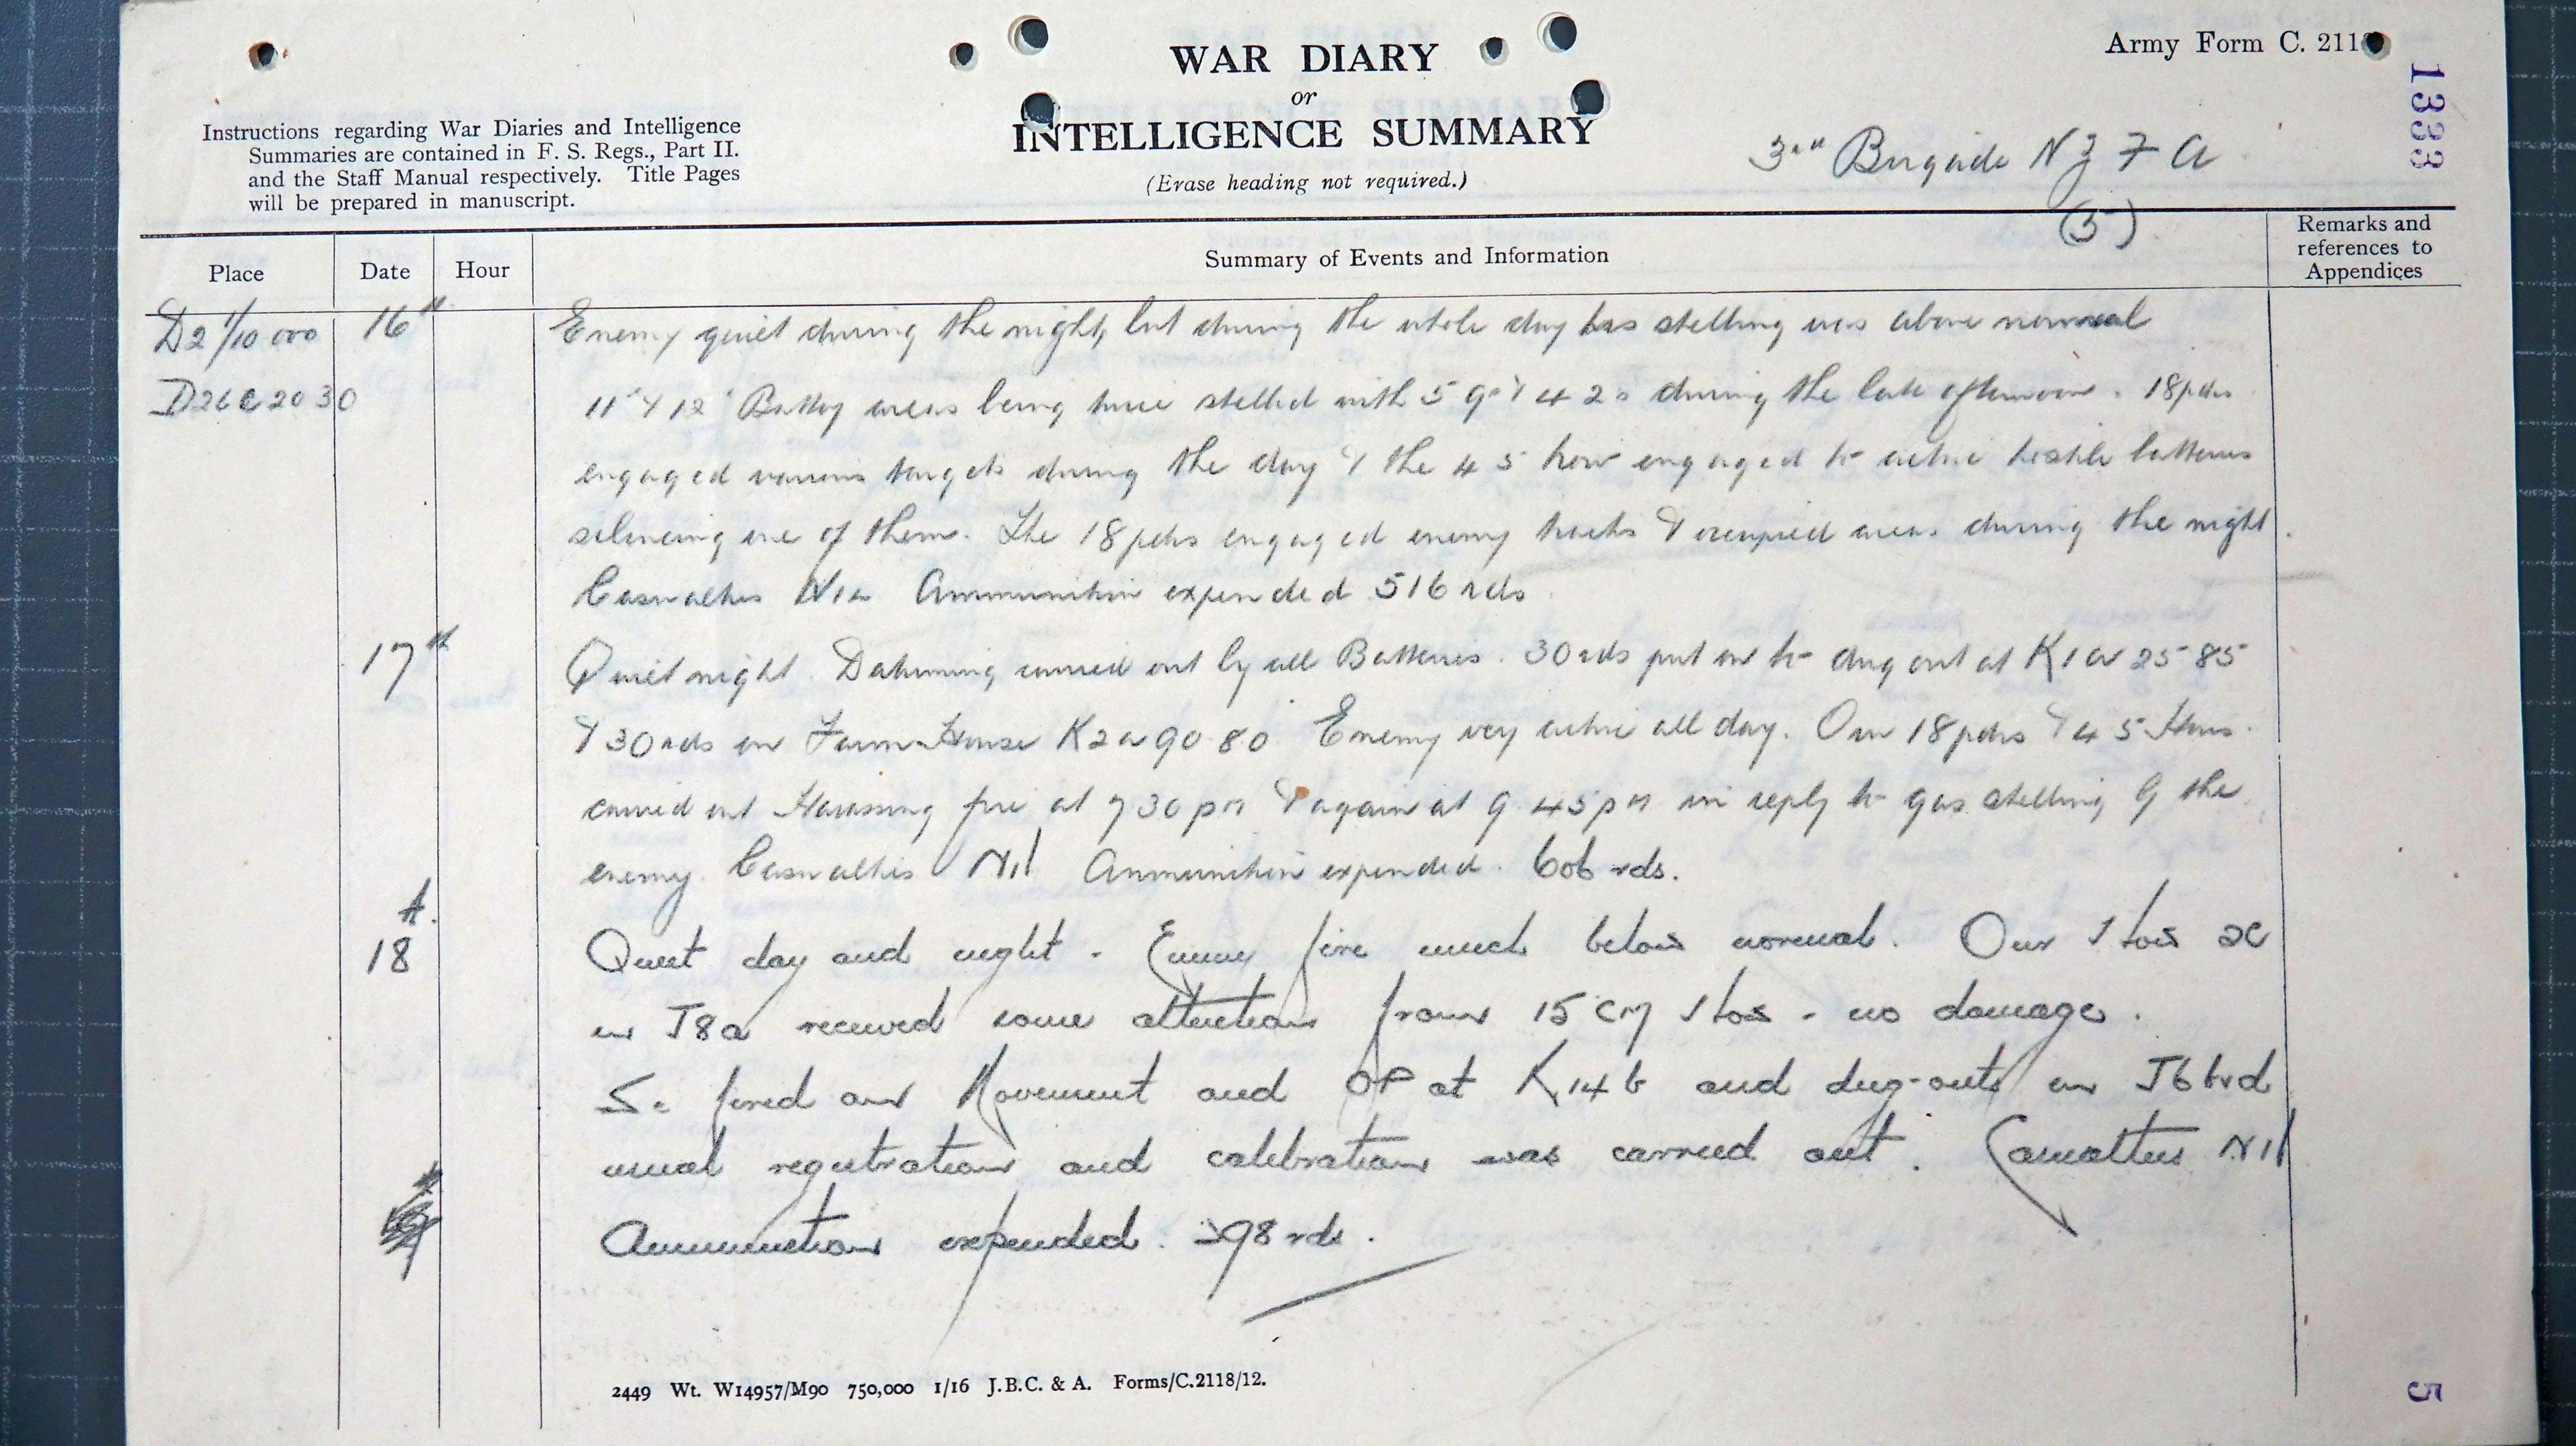 WAR DIARY
or
INTELLIGENCE SUMMARY
(Erase heading not required.)
Army Form C. 211
1333
Instructions regarding War Diaries and Intelligence
Summaries are contained in F. S. Regs., Part II.
and the Staff Manual respectively. Title Pages
will be prepared in manuscript.
3rd Brigade N Z F A
(5)
Place Date Hour Summary of Events and Information Remarks and references to Appendices
D2 1/10 000 16th Enemy quiet during the night, but during the whole day his shelling was above normal
D26c 20 30 11th & 12th Battery areas being twice shelled with 5 9s & 4 2s during the late afternoon. 18pdrs
engaged various targets during the day & the 4 5 how engaged to active hostile batteries
silencing one of them. The 18 pdrs engaged enemy tracks & occupied areas during the night.
Casualties Nil Ammunition expended 516 rds
17th Quiet night. Datuming carried out by all Batteries. 30 rds put on to dug out at K1a 25 85
& 30 rds on Farm House K2a 90 80. Enemy very active all day. Our 18 pdrs & 4 5 Hows.
carried out Harassing fire at 7 30 pm & again at 9 45 pm in reply to gas shelling by the
enemy. Casualties Nil Ammunition expended. 606 rds.
18th. Quiet day and night - Enemy fire much below normal. Our Hows
in J8a received some attention from 15 cm Hos - no damage.
fired on Movement and OP at K14b and dug-outs in J6b&d
usual registration and calibration was carried out. Casualties Nil
Ammunition expended. 298 rds.
2449 Wt. W14957/M90 750,000 1/16 J.B.C. & A. Forms/C.2118/12.
5